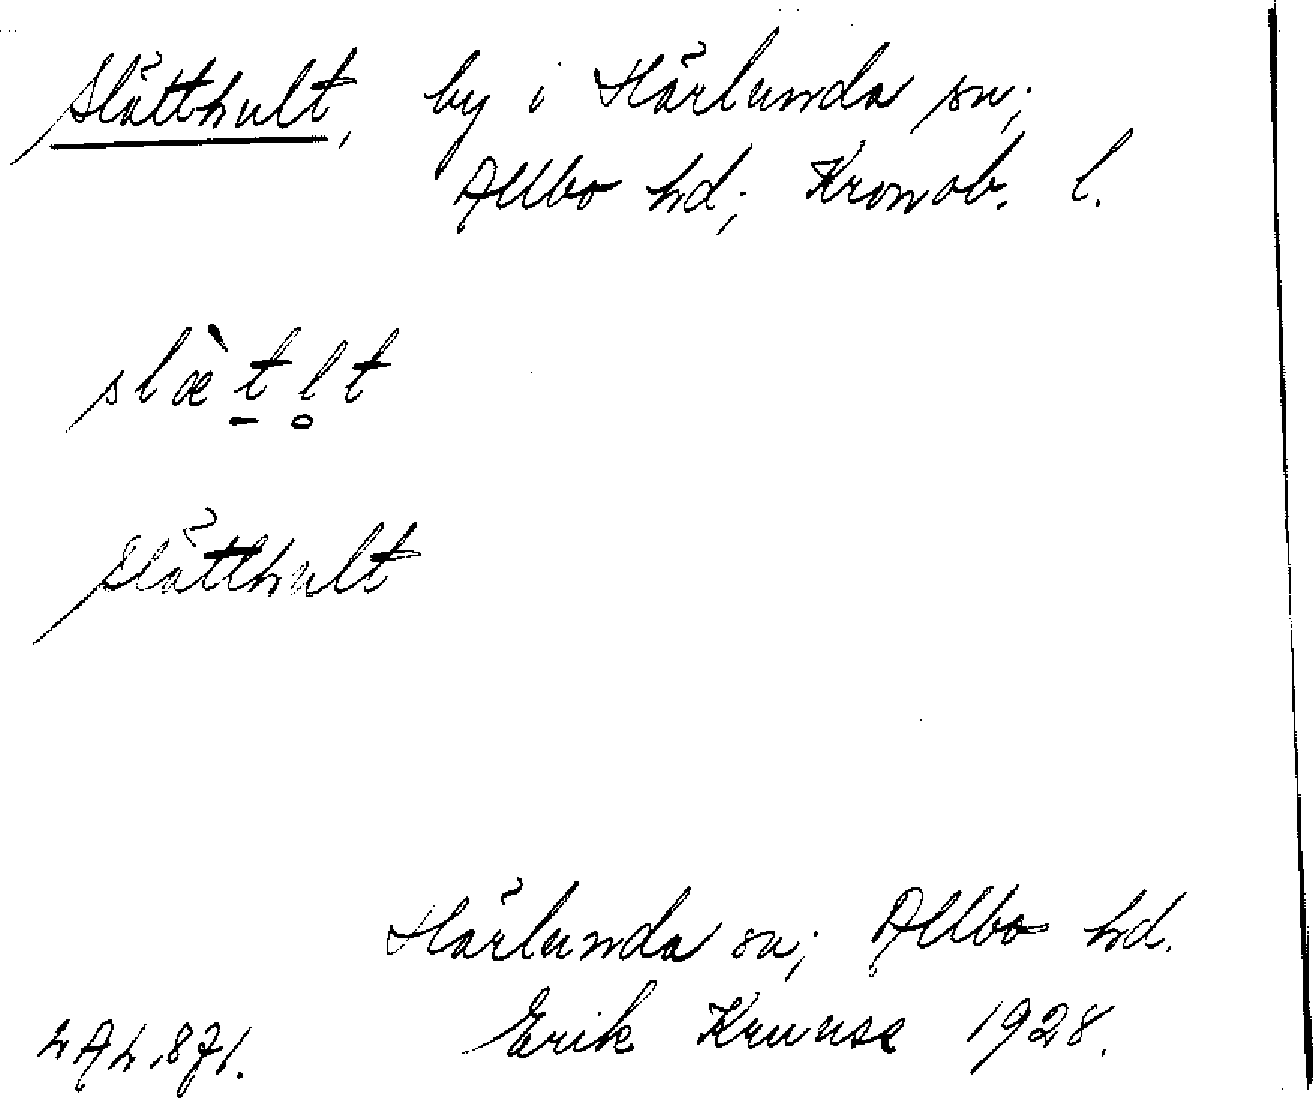 Slätthult, by i Härlunda sn;
Allbo hd; Kronob. l.
slæ̀t̠l̥t
Slätthult
Härlunda sn; Allbo hd.
Erik Kruuse 1928.